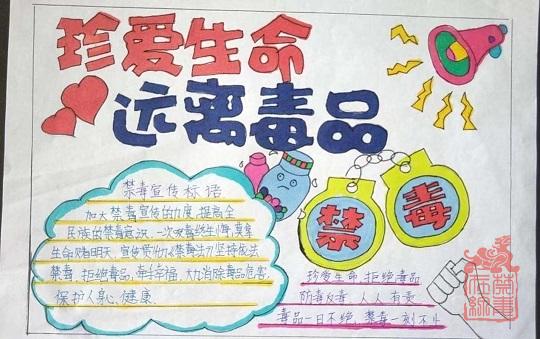 珍爱生命
远离毒品
禁毒宣传标语
加大禁毒宣传的力度,提高全
民族的禁毒意识,一次吸毒终生悔,莫拿
生命赌明天,宣传贯彻《禁毒法》坚持依法
禁毒,拒绝毒品,牵手幸福,大力消除毒品危害,
保护人身心健康、
禁毒
珍爱生命,拒绝毒品
防毒反毒,人人有责
毒品一日不绝,禁毒一刻不止